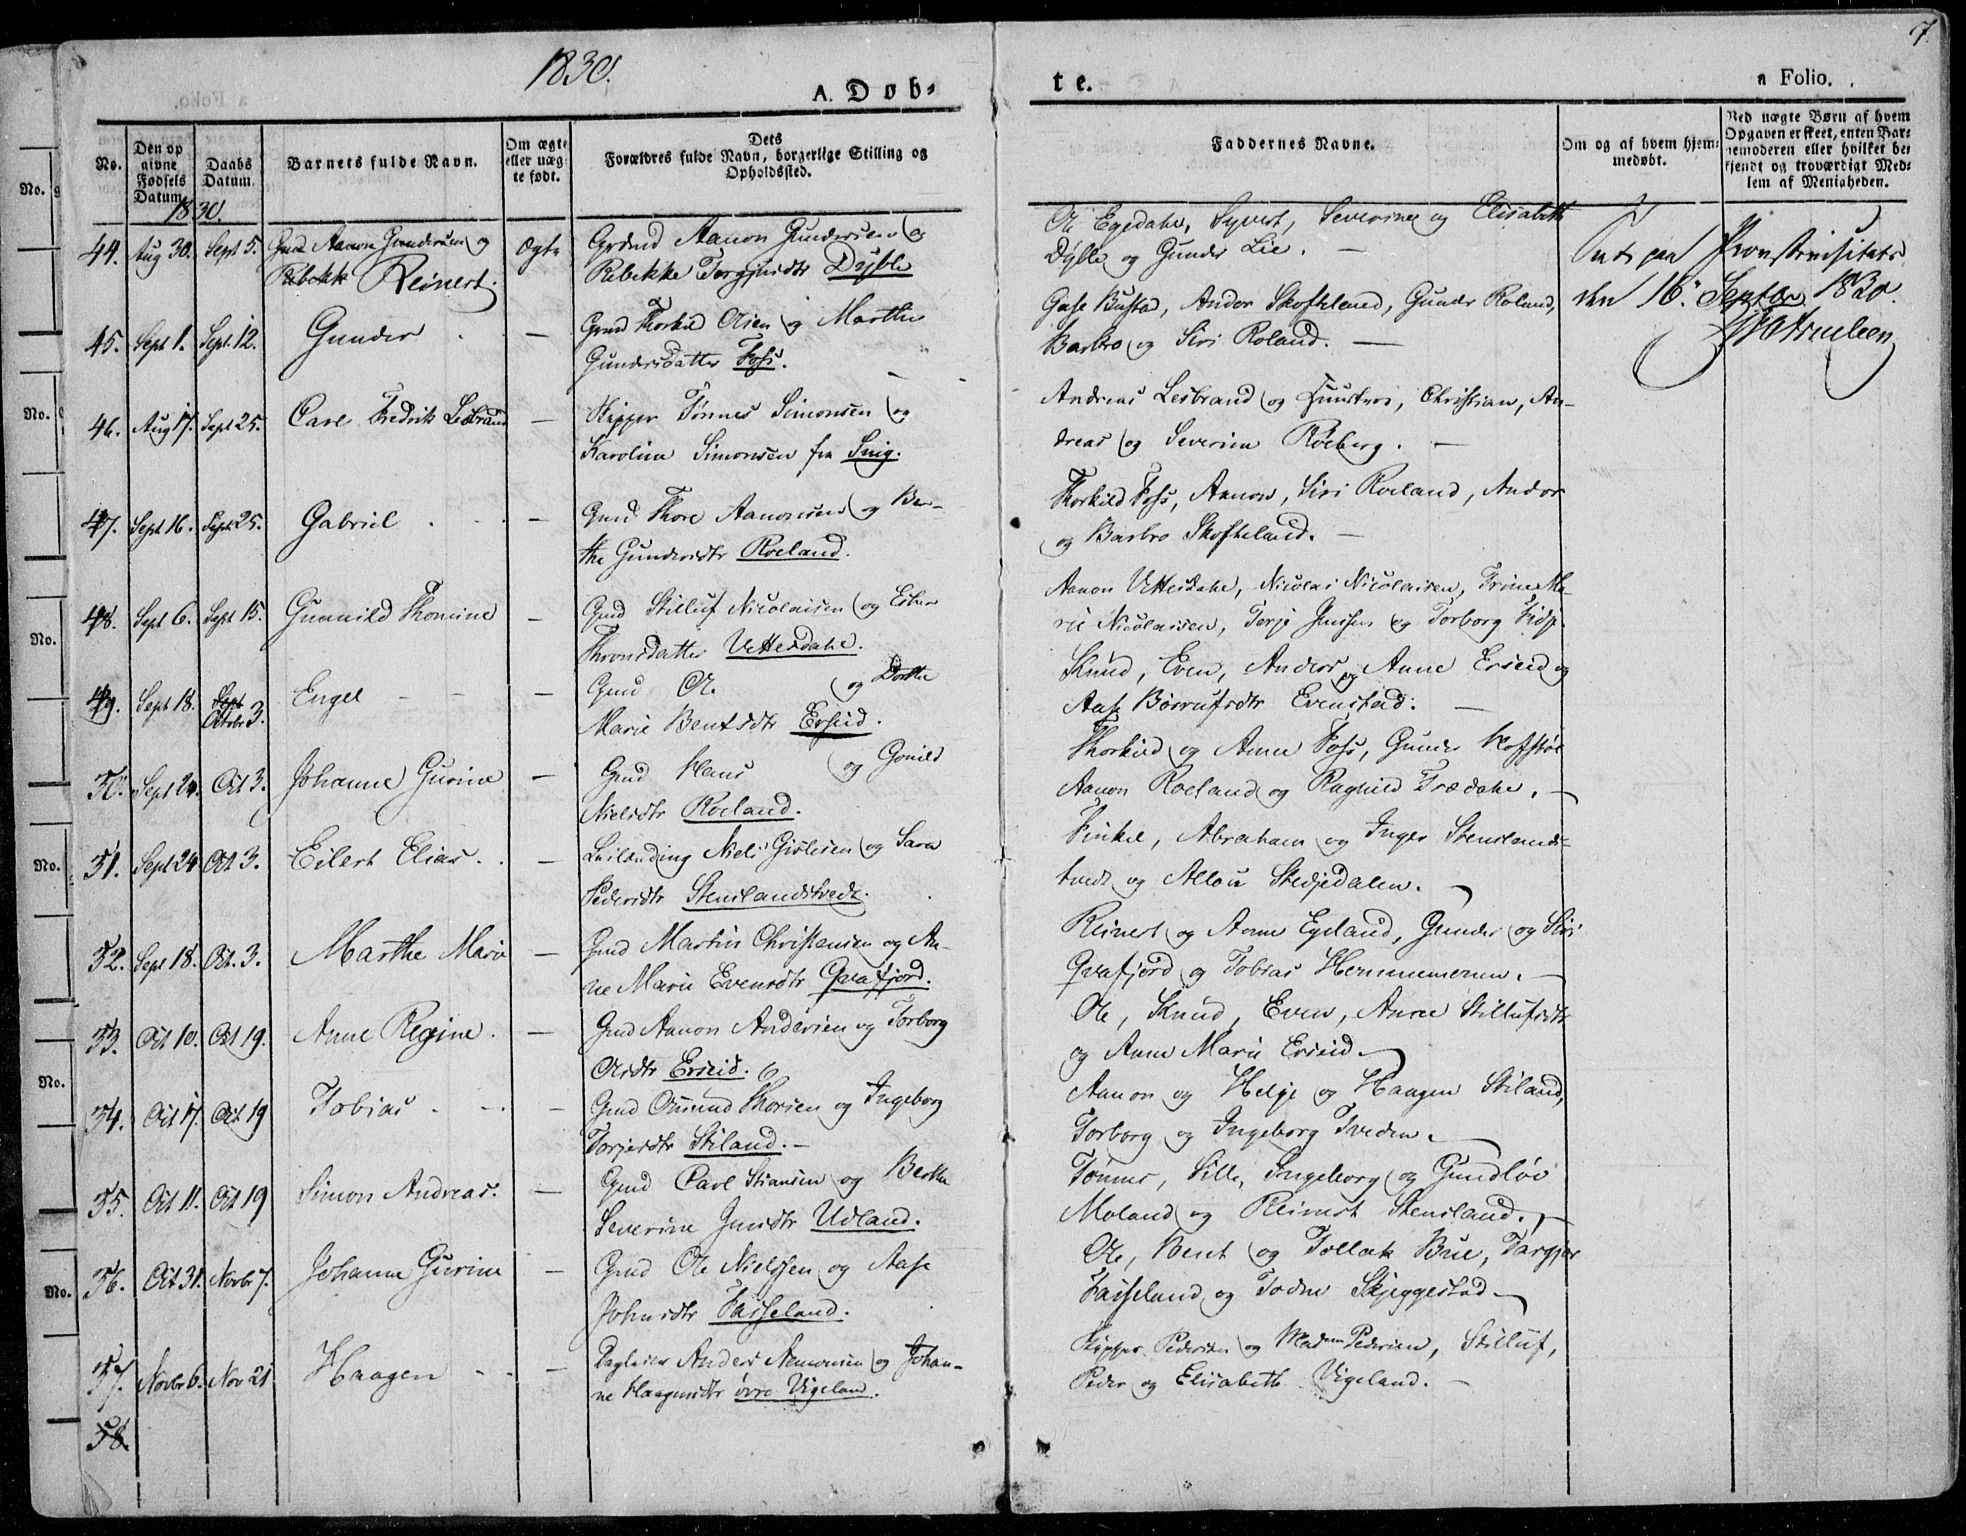 1830.
7.
A. Døb-
te.
a Folio.
No.
Den op
givne
Fødsels
Datum.
Daabs
Datum.
Barnets fulde Navn.
Om ægte
eller uæg-
te født.
Dets
Forældres fulde Navn, borgerlige Stilling og
Opholdssted.
Faddernes Navne.
Om og af hvem hjem-
medøbt.
Ved uægte Børn af hvem
Opgaven er skeet, enten Bar-
nemoderen eller hvilket be-
kjendt og troværdigt Med-
lem af Menigheden.
1830.
44. Aug 30. Sept 5. Aanon Gundersen og Ægte Aanon Gundersen og
Rebekk Reinert. Rebekke Torgjusdtr Dyble
Ole Egedahe, Syvert, Severine og Elisabeth
Dyble og Gunder Lie. —
Provstevisitats
den 16. Septbr. 1830.
45. Sept 1. Sept. 12. Gunder — Gmd Thorkild Olsen og Marthe
Gundersdatter Foss.
Bustad, Andor Skofteland, Gunder Roland,
Barbro og Siri Roland. —
46. Aug 17. Sept 25. Carl Fredrik Lesbrand — Skipper Tønnes Simonsen og
Karoline Simonsen fra Snig.
Andreas Lesbrand og Huustroe, Christian, An-
dreas og Severine Røeberg. —
47. Sept 16. Sept 25. Gabriel — Gmd Thore Aanonsen og Ber-
the Gundersdtr Roeland.
Thorkild Foss, Aanon, Siri Roeland, Andor
og Barbro Skofteland. —
48. Sept 6. Sept 15. Gunnild Thomine — Gmd Stilluf Nicolaisen og
Thronsdatter Uttersdahe.
Aanon Uttersdahe, Nicolai Nicolaisen, Trine Ma-
rie Nicolaisen, Terje Jenssen og Torborg
49. Sept 18. Sept
Octobr 3. Engel — Gmd Ole og Dorthe
Marie Bentsdtr Erseid.
Knud, Even, Anders og Anne Erseid og
Aase Børrufsdtr Evenstad. —
50. Sept 24. Oct 3. Johanne Gurine — Gmd Hans og Gonild
Nielsdtr Roeland.
Thorkild og Anne Foss, Gunder
Aanon Roeland og Raghild Trædahe. —
51. Sept 24 Oct 3. Eilert Elias. — Niels Gislesen og Sara
Pedersdtr Stenslandstvedt.
Finkel, Abraham og Inger Stenslands-
tvedt og Allou Stedjedalen.
52. Sept 18. Oct. 3. Marthe Marie — Gmd Martin Christensen og An-
ne Marie Evensdtr Qvafjord.
Reinert og Anne Egeland, Gunder og Siri
Qvafjord og Tobias
53. Oct 10. Oct 19. Anne Regine. — Gmd Aanon Andersen og Torborg
Olsdtr Erseid.
Ole, Knud, Even, Anne Stillufsdtr
og Anne Marie Erseid.
54. Oct 17. Oct 19 Tobias — Gmd Omund Thorsen og Ingeborg
Torjersdtr Stiland. —
Aanon og Helje og Haagen Stiland,
Torborg og Ingeborg Tveden.
55. Oct 11. Oct 19 Simon Andreas. — Gmd Carl Stiansen og Berthe
Severine Udland.
Tønnes, Sille, Ingeborg og Gundløv
Moland og Reinert Stensland.
56. Oct 31. Novbr 7. Johanne Gurine — Gmd Ole Nielssen og Aase
Johnsdtr Fasseland.
Ole, Bent og Tollak Bue, Targjer
Fasseland og Todne Skjeggestad
57. Novbr 6. Nov 21 Haagen — Anders Aamonsen og Johan-
ne Haagensdtr øvre Vigeland.
Skipper Pedersen og Madm Pedersen, Stilluf,
Peder og Elisabeth Vigeland. —
58.